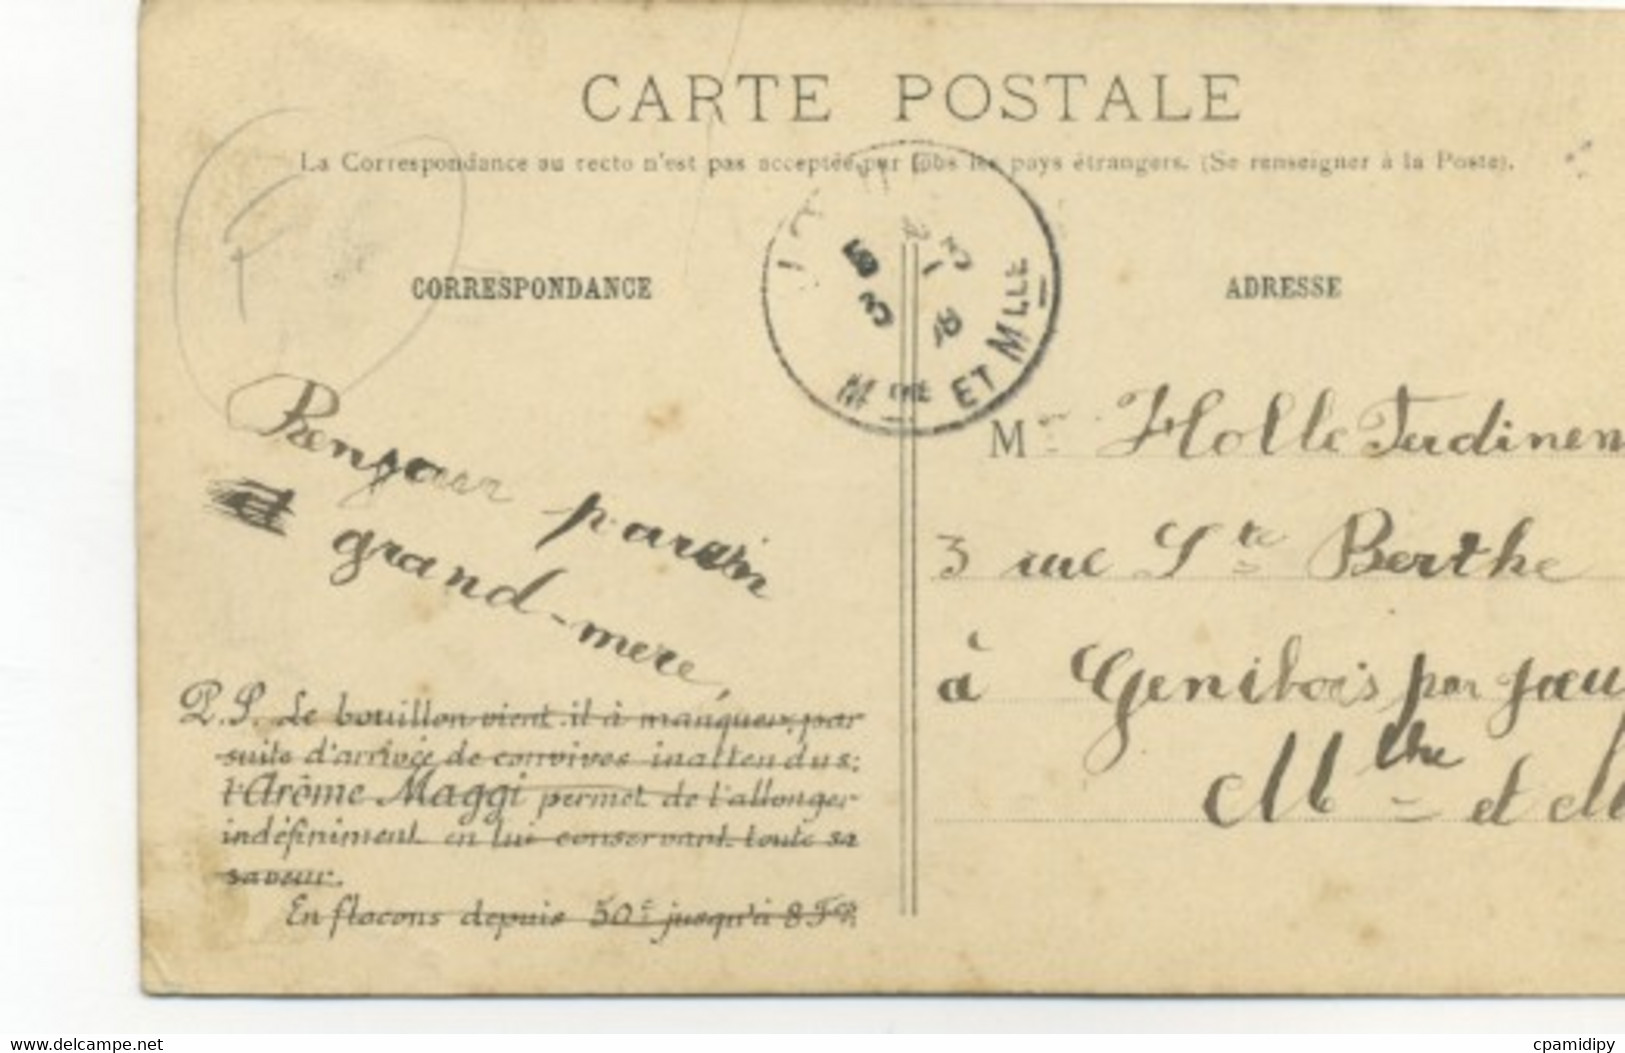 CARTE POSTALE
La Correspondance au recto n'est pas acceptée par tous les pays étrangers. (Se renseigner à la Poste).
CORRESPONDANCE
Renjour parain
grand-mere
P.S. Le bouillon vient-il à manquer, par
suite d'arrivée de convives inattendus:
l'Arôme Maggi permet de l'allonger
indéfiniment en lui conservant toute sa
saveur.
En flacons depuis 50c jusqu'à 8 Fr.
Mthe ET MLLE
ADRESSE
Mr Holle Ferdinen
3 rue Ste Berthe
à Genibois par Jœu
Mthe et M
delcampe.net
cpamidipy